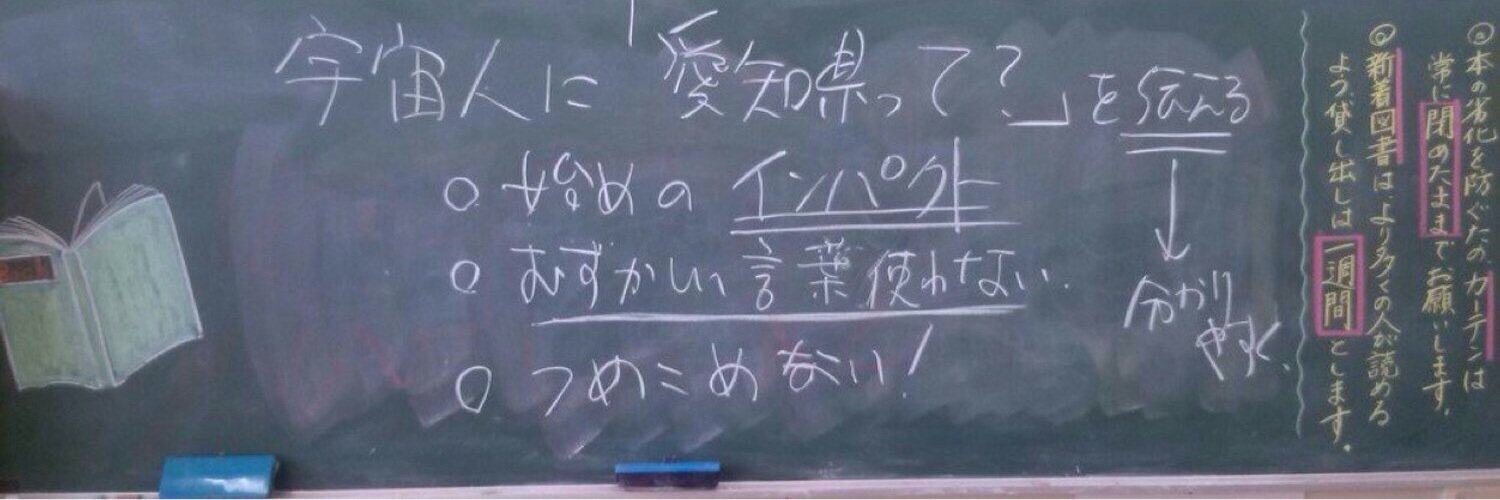 宇宙人に「愛知県って?」を伝える
○ 始めのインパクト
○ むずかしい言葉使わない.
○ つめこめない!
↓
分かり
やすく、
◎本の劣化を防ぐため、カーテンは
常に閉めたままでお願いします。
◎新着図書は、より多くの人が読める
よう貸し出しは一週間とします。